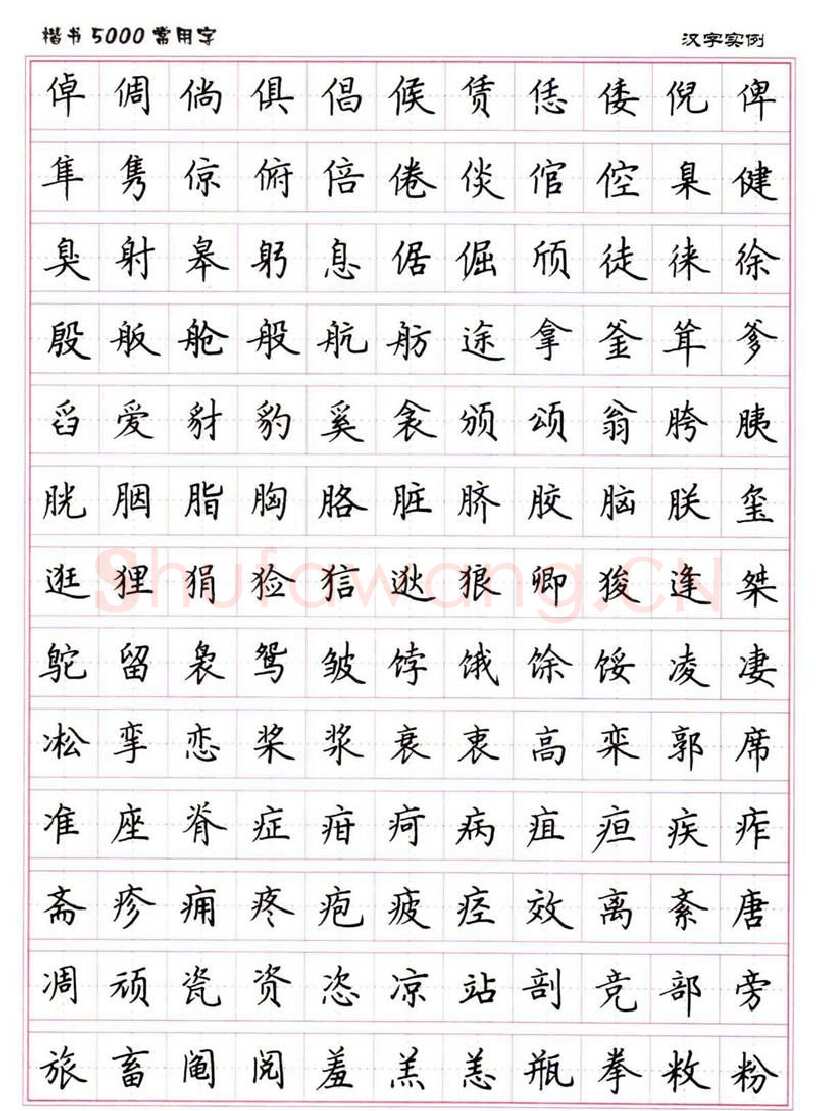 楷书5000常用字 汉字实例
倬 倜 倘 俱 倡 候 赁 恁 倭 倪 俾
隼 隽 倞 俯 倍 倦 倓 倌 倥 臬 健
臭 射 皋 躬 息 倨 倔 颀 徒 徕 徐
殷 舨 舱 般 航 舫 途 拿 釜 耸 爹
舀 爱 豺 豹 奚 衾 颁 颂 翁 胯 胰
胱 胭 脂 胸 胳 脏 脐 胶 脑 朕 玺
逛 狸 狷 猃 狺 逖 狼 卿 狻 逢 桀
鸵 留 袅 鸳 皱 饽 饿 馀 馁 凌 凄
凇 挛 恋 桨 浆 衰 衷 高 栾 郭 席
准 座 脊 症 疳 疴 病 疽 疸 疾 痄
斋 疹 痈 疼 疱 疲 痉 效 离 紊 唐
凋 顽 瓷 资 恣 凉 站 剖 竞 部 旁
旅 畜 阄 阅 羞 羔 恙 瓶 拳 敉 粉
Shufawang.CN